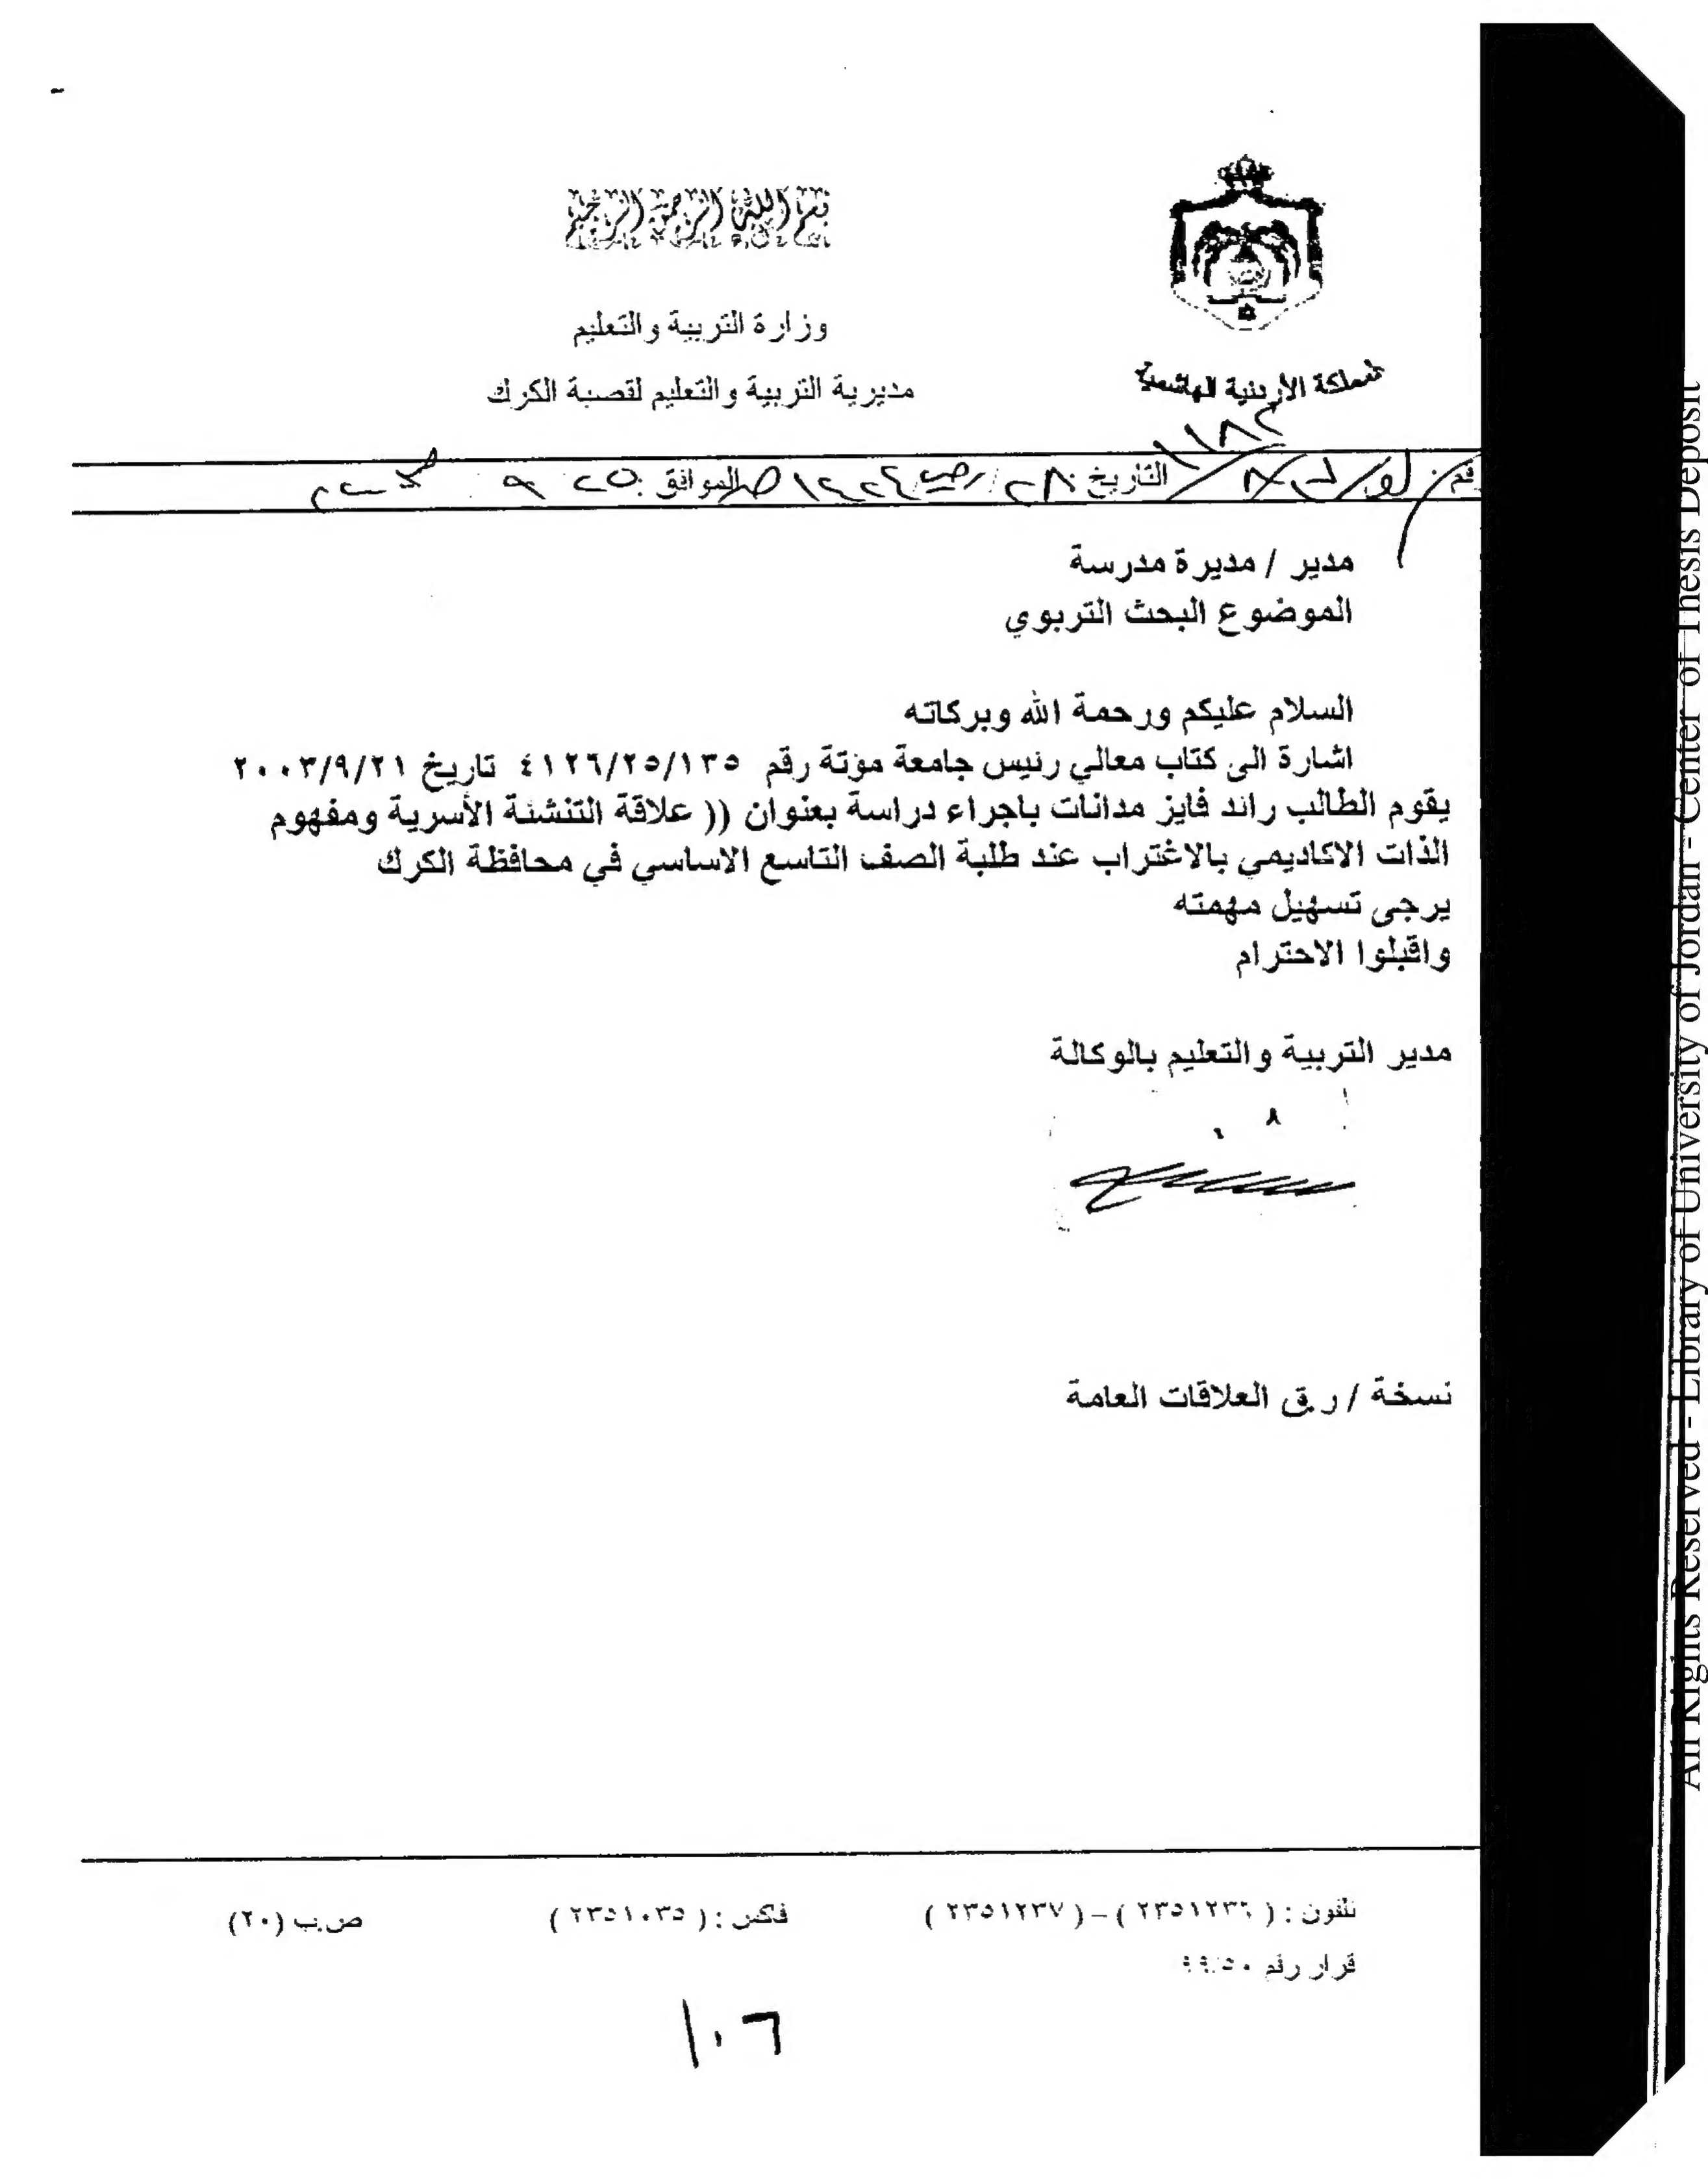 بسم الله الرحمن الرحيم
وزارة التربية والتعليم
المملكة الأردنية الهاشمية
مديرية التربية والتعليم لقصبة الكرك
التاريخ : ٢٨ / ١٤٢٤ الموافق : ٢٥ ٩
مدير / مديرة مدرسة
الموضوع البحث التربوي
السلام عليكم ورحمة الله وبركاته
اشارة الى كتاب معالي رئيس جامعة مؤتة رقم ٤١٢٦/٢٥/١٣٥ تاريخ ٢٠٠٣/٩/٢١
يقوم الطالب رائد فايز مدانات باجراء دراسة بعنوان (( علاقة التنشئة الأسرية ومفهوم
الذات الاكاديمي بالاغتراب عند طلبة الصف التاسع الاساسي في محافظة الكرك
يرجى تسهيل مهمته
واقبلوا الاحترام
مدير التربية والتعليم بالوكالة
نسخة / ر.ق العلاقات العامة
تلفون : ( ٢٣٥١٢٣٦ ) – ( ٢٣٥١٢٣٧ ) فاكس : ( ٢٣٥١٠٣٥ ) ص.ب (٢٠)
قرار رقم
١٠٦
All Rights Reserved - Library of University of Jordan - Center of Thesis Deposit